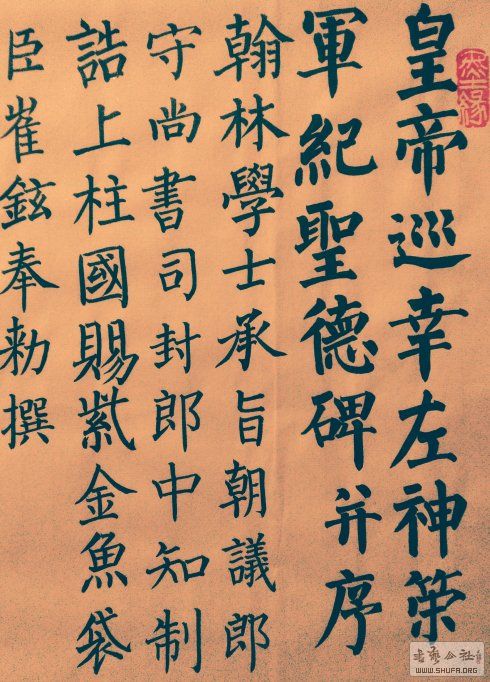 皇帝巡幸左神策
軍紀聖德碑并序
翰林學士承旨朝議郎
守尚書司封郎中知制
誥上柱國賜紫金魚袋
臣崔鉉奉勅撰
WWW.SHUFA.ORG